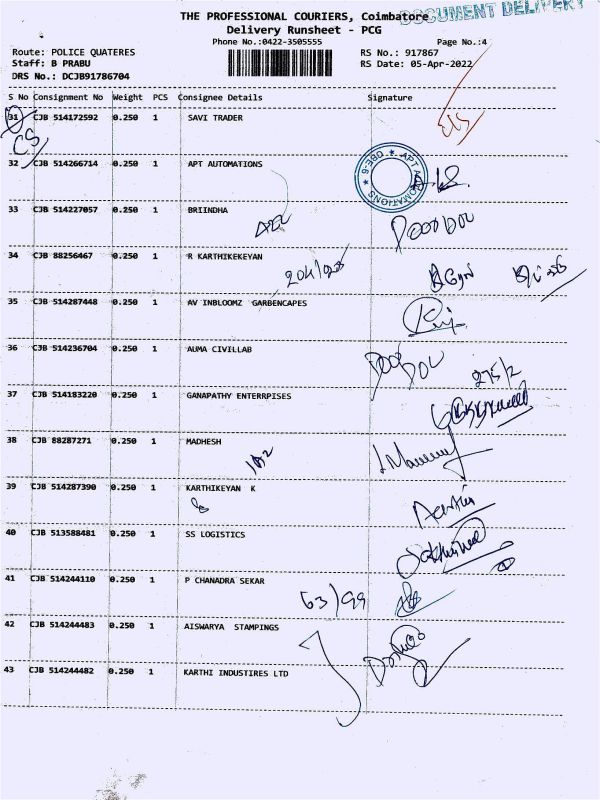 THE PROFESSIONAL COURIERS, Coimbatore
DOCUMENT DELIVERY
Delivery Runsheet - PCG
Phone No.:0422-3505555 Page No.:4
Route: POLICE QUATERES RS No.: 917867
Staff: B PRABU RS Date: 05-Apr-2022
DRS No.: DCJB91786704
S No Consignment No Weight PCS Consignee Details Signature
31 CJB 514172592 0.250 1 SAVI TRADER
CS
32 CJB 514266714 0.250 1 APT AUTOMATIONS
APT AUTOMATIONS
33 CJB 514227057 0.250 1 BRIINDHA
34 CJB 88256467 0.250 1 R KARTHIKEKEYAN
35 CJB 514287448 0.250 1 AV INBLOOMZ GARBENCAPES
36 CJB 514236704 0.250 1 AUMA CIVILLAB
275/2
37 CJB 514183220 0.250 1 GANAPATHY ENTERRPISES
38 CJB 88287271 0.250 1 MADHESH
39 CJB 514287390 0.250 1 KARTHIKEYAN K
40 CJB 513588481 0.250 1 SS LOGISTICS
41 CJB 514244110 0.250 1 P CHANADRA SEKAR
63/99
42 CJB 514244483 0.250 1 AISWARYA STAMPINGS
43 CJB 514244482 0.250 1 KARTHI INDUSTIRES LTD